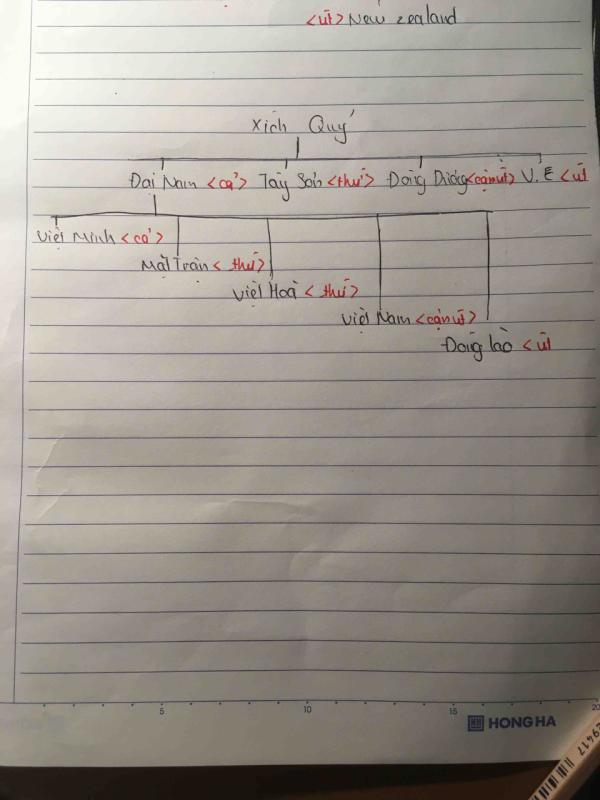 <út> New zealand
Xích Quỷ
Đại Nam <cả> Tây Sơn <thứ> Đông Dương <cận út> V.E <út
Việt Minh <cả>
Mặt Trận <thứ>
Việt Hoà <thứ>
Việt Nam <cận út>
Đông lào <út
5 10 15 20
HONG HA
29417